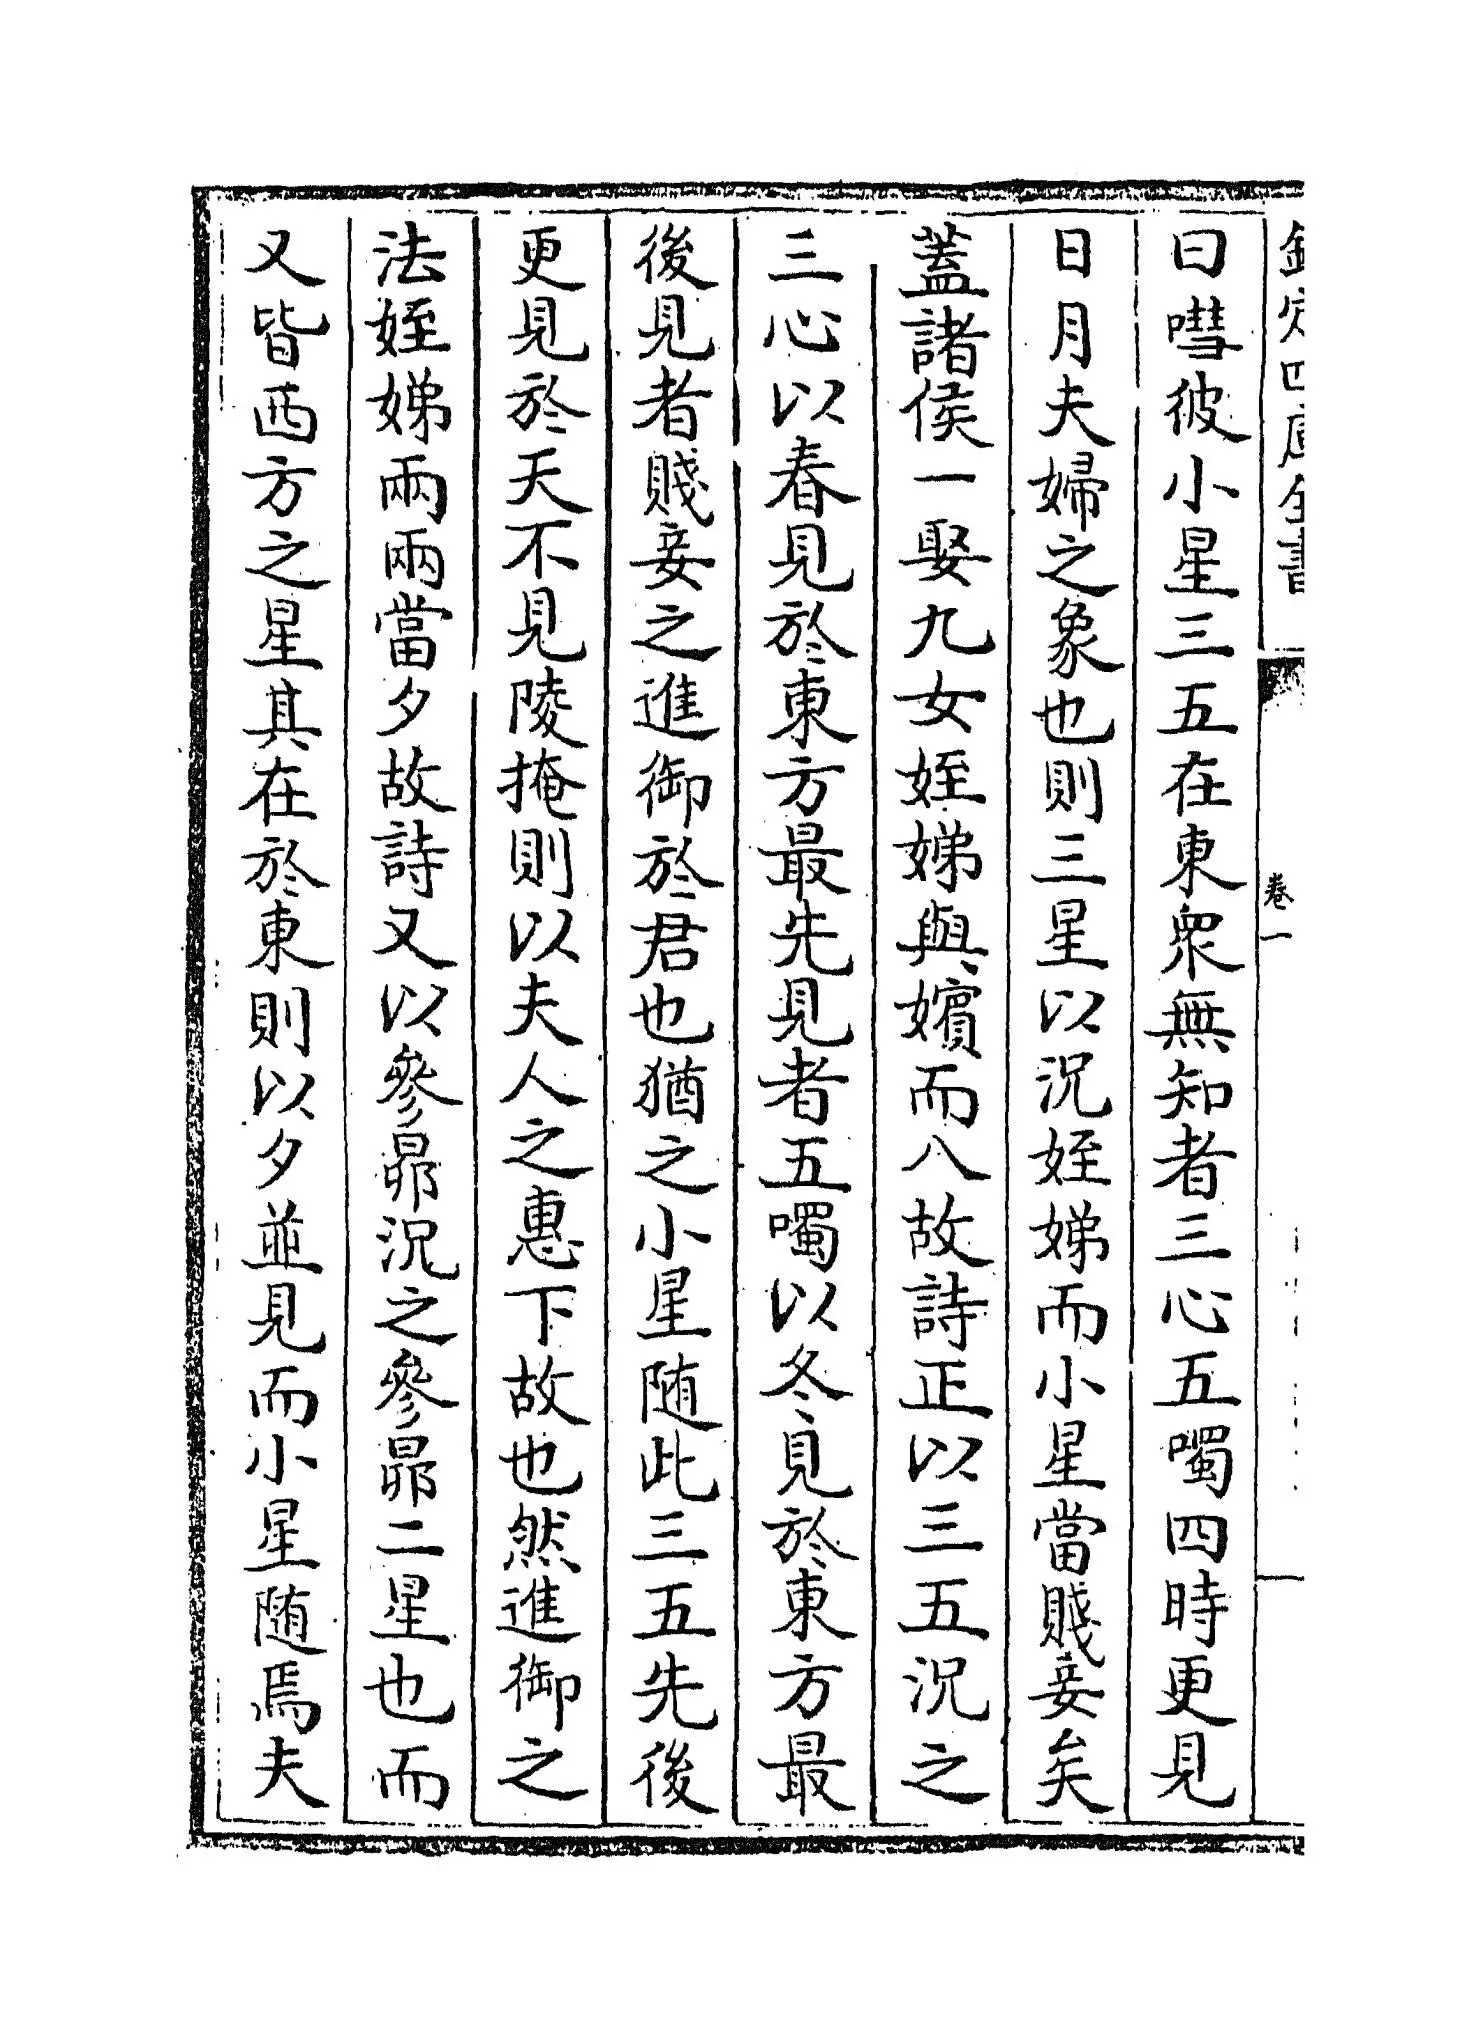 欽定四庫全書
卷一
曰嘒彼小星三五在東衆無知者三心五噣四時更見
日月夫婦之象也則三星以況姪娣而小星當賤妾矣
蓋諸侯一娶九女姪娣與嬪而八故詩正以三五況之
三心以春見於東方最先見者五噣以冬見於東方最
後見者賤妾之進御於君也猶之小星随此三五先後
更見於天不見陵掩則以夫人之惠下故也然進御之
法姪娣兩兩當夕故詩又以參昴況之參昴二星也而
又皆西方之星其在於東則以夕並見而小星随焉夫